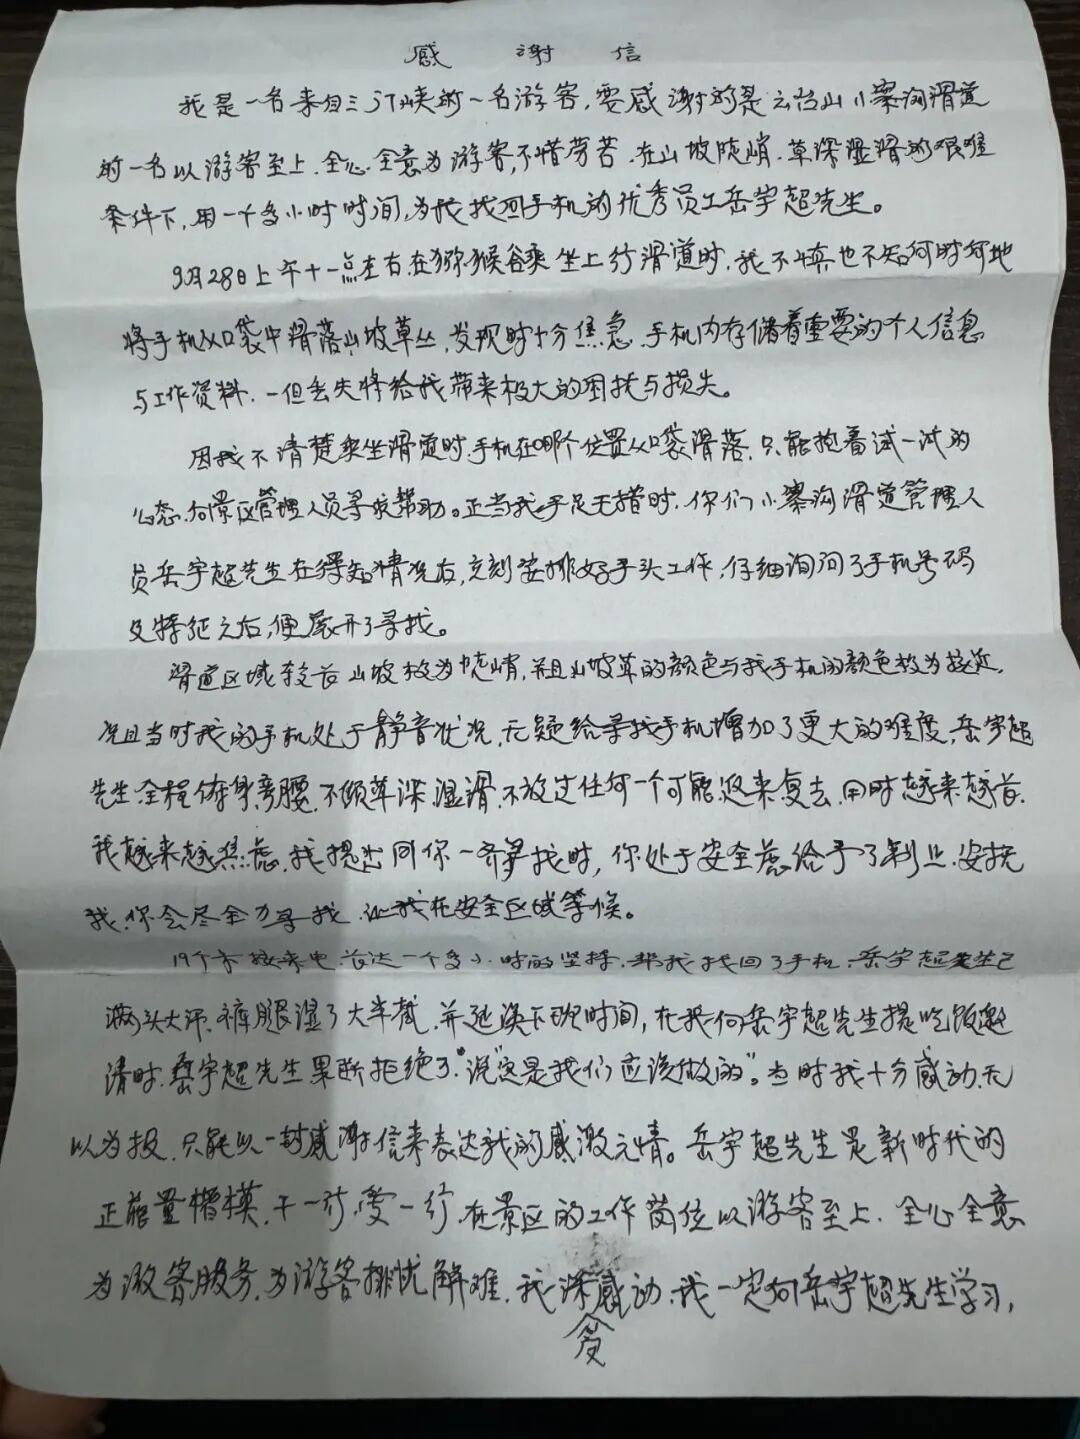 感谢信
我是一名来自三门峡的一名游客,要感谢的是云台山小寨沟滑道
的一名以游客至上、全心全意为游客,不惜劳苦、在山坡陡峭、草深湿滑的艰难
条件下,用一个多小时时间,为我找回手机的优秀员工岳宇超先生。
9月28日上午十一点左右,在猕猴谷乘坐上行滑道时,我不慎也不知何时何地
将手机从口袋中滑落山坡草丛,发现时十分焦急,手机内存储着重要的个人信息
与工作资料,一但丢失将给我带来极大的困扰与损失。
因我不清楚乘坐滑道时,手机在哪个位置从口袋滑落,只能抱着试一试的
心态,向景区管理人员寻求帮助。正当我手足无措时,你们小寨沟滑道管理人
员岳宇超先生在得知情况后,立刻安排好手头工作,仔细询问了手机号码
及特征之后,便展开了寻找。
滑道区域较长,山坡较为陡峭,并且山坡草的颜色与我手机的颜色较为接近,
况且当时我的手机处于静音状况,无疑给寻找手机增加了更大的难度,岳宇超
先生全程俯身弯腰,不顾草深湿滑,不放过任何一个可能,返来复去,用时越来越长,
我越来越焦虑,我提出同你一齐寻找时,你处于安全虑给予了制止,安抚
我,你会尽全力寻找,让我在安全区域等候。
19个未接来电,长达一个多小时的坚持,帮我找回了手机,岳宇超先生已
满头大汗,裤腿湿了大半截,并延误下班时间,在我向岳宇超先生提吃饭邀
请时,岳宇超先生果断拒绝了,说"这是我们应该做的"。当时我十分感动,无
以为报,只能以一封感谢信来表达我的感激之情。岳宇超先生是新时代的
正能量楷模,干一行,爱一行,在景区的工作岗位以游客至上、全心全意
为游客服务,为游客排忧解难,我深受感动,我一定向岳宇超先生学习,